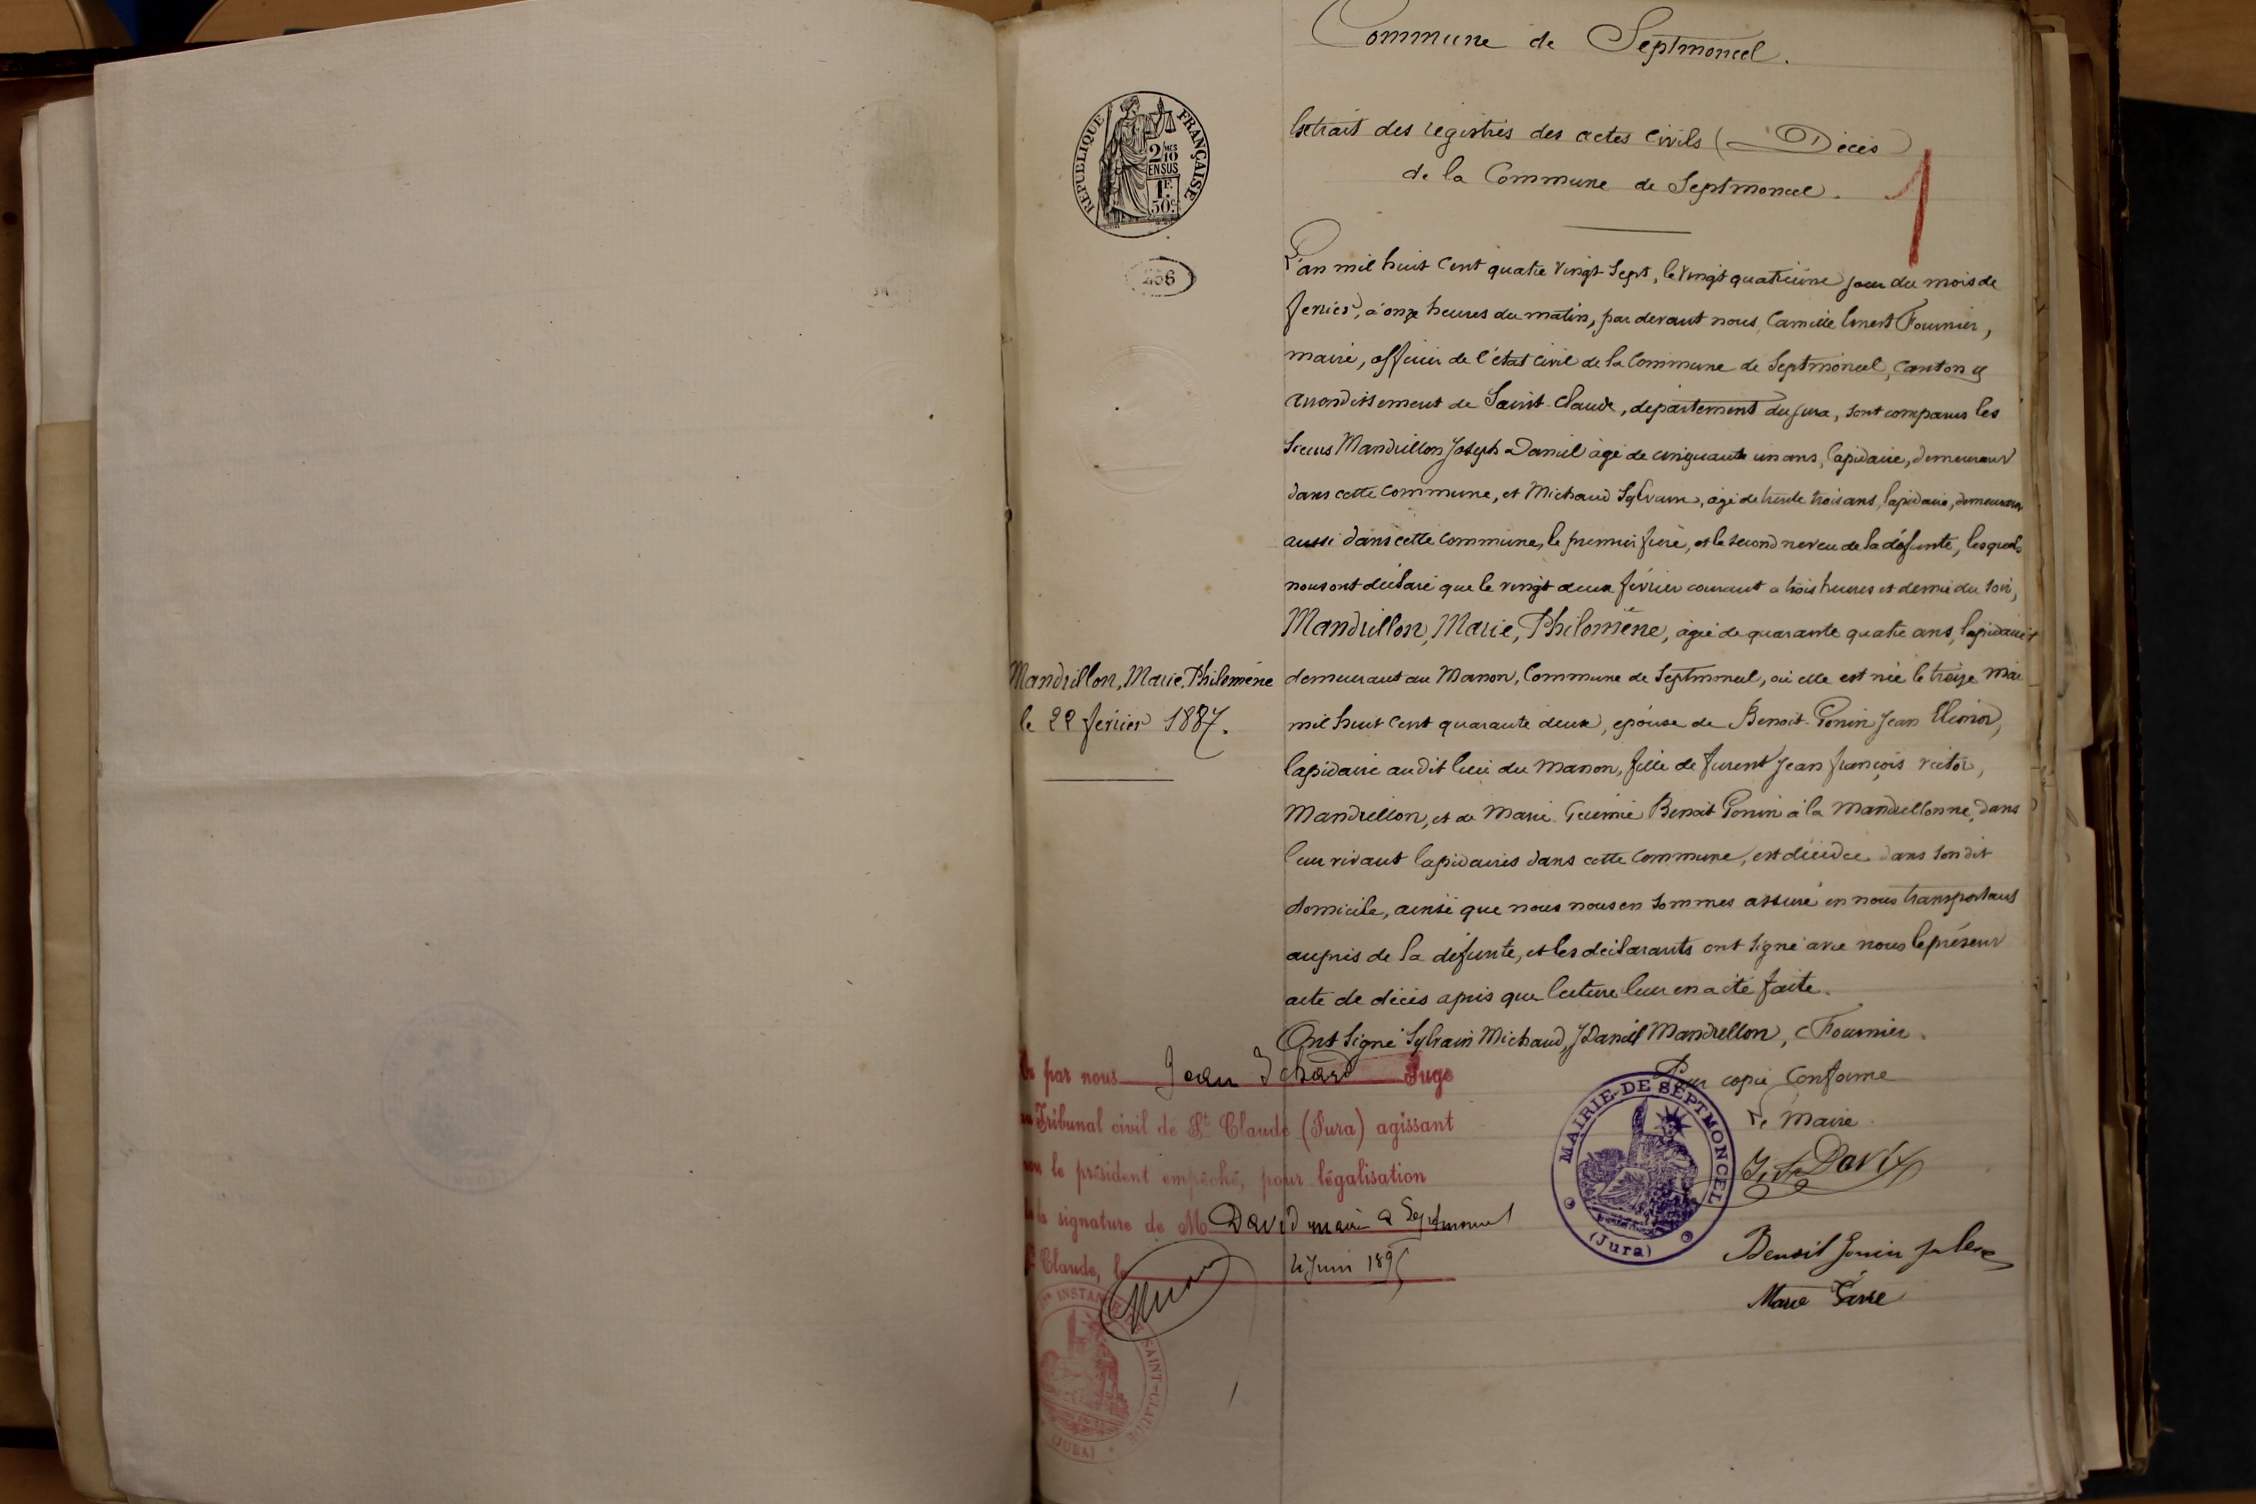 Commune de Septmoncel.
Extrait des registres des actes civils (Décès)
de la Commune de Septmoncel.
1
RÉPUBLIQUE FRANÇAISE
2/10 EN SUS
1F. 50c
256
L'an mil huit cent quatre vingt sept, le vingt quatrième jour du mois de
fevrier, à onze heures du matin, par devant nous, Camille Ernest Fournier,
maire, officier de l'état civil de la Commune de Septmoncel, canton &
arrondissement de Saint-Claude, département du Jura, sont comparus les
sieurs Mandrillon Joseph Daniel âgé de cinquante un ans, lapidaire, demeurant
dans cette commune, et Michaud Sylvain, âgé de trente trois ans, lapidaire, demeurant
aussi dans cette commune, le premier frère, et le second neveu de la défunte, lesquels
nous ont déclaré que le vingt deux février courant a trois heures et demie du soir,
Mandrillon, Marie, Philomène, âgée de quarante quatre ans, lapidaire
demeurant au Manon, Commune de Septmoncel, où elle est née le treize mai
mil huit cent quarante deux, épouse de Benoit-Gonin Jean
lapidaire audit lieu du Manon, fille de furent Jean françois victor,
Mandrillon, et de Marie Benoit Gonin à la mandrillonne, dans
leur vivant lapidaires dans cette commune, est décédée dans son dit
domicile, ainsi que nous nous en sommes assuré en nous transportant
auprès de la défunte, et les déclarants ont signé avec nous le présent
acte de décès après que lecture leur en a été faite.
Ont signé Sylvain Michaud, J Daniel Mandrillon, C Fournier.
Mandrillon, Marie, Philomène
le 22 fevrier 1887.
Pour copie conforme
Le Maire
David
MAIRIE DE SEPTMONCEL
(Jura)
Benoit Gonin
Marie
par nous Jean Juge
Tribunal civil de St Claude (Jura) agissant
le président empêché, pour légalisation
la signature de M David maire a Septmoncel
Claude, le 4 Juin 189
INSTANCE SAINT-CLAUDE
(JURA)